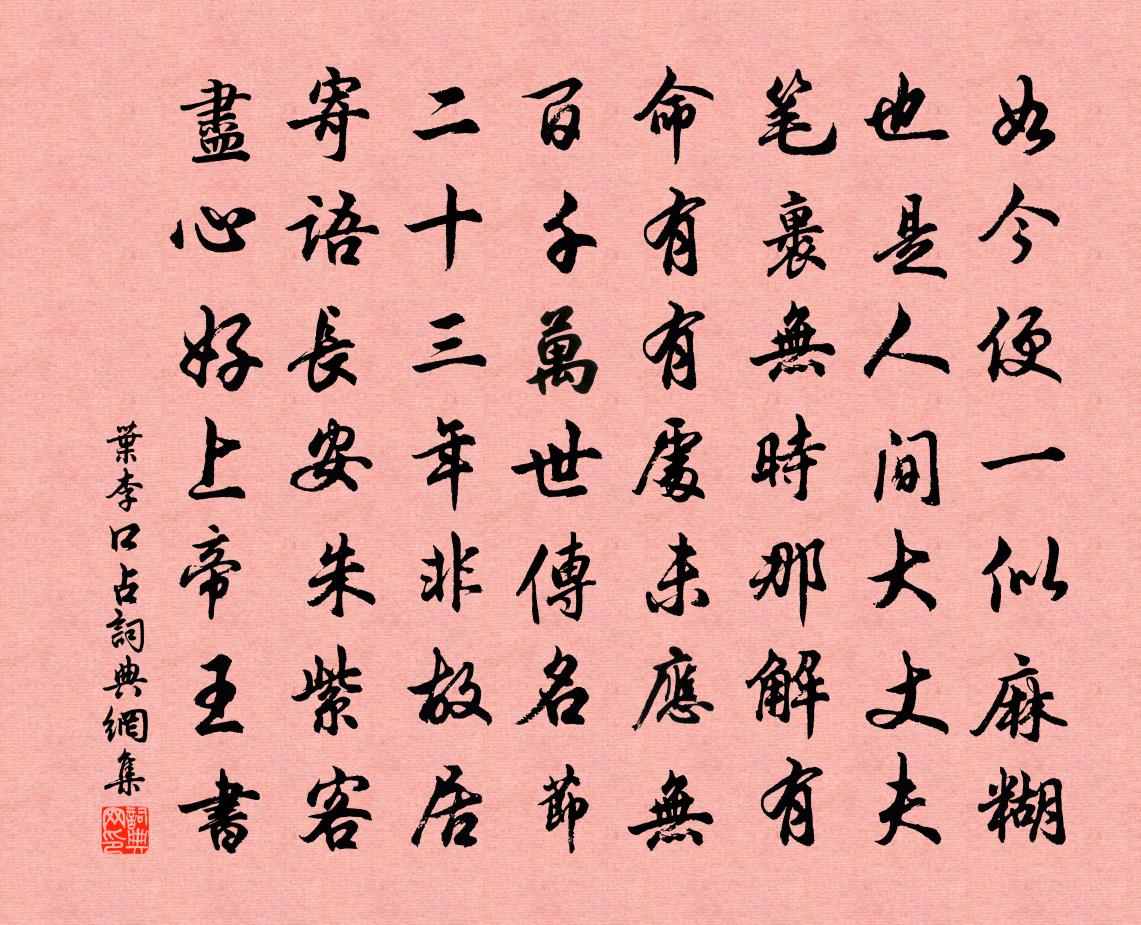 如今便一似麻糊
也是人间大丈夫
笔裏無時那解有
命有有處未應無
百千萬世傳名節
二十三年非故居
寄語長安朱紫客
盡心好上帝王書
葉李口占詞典網集
詞典网印